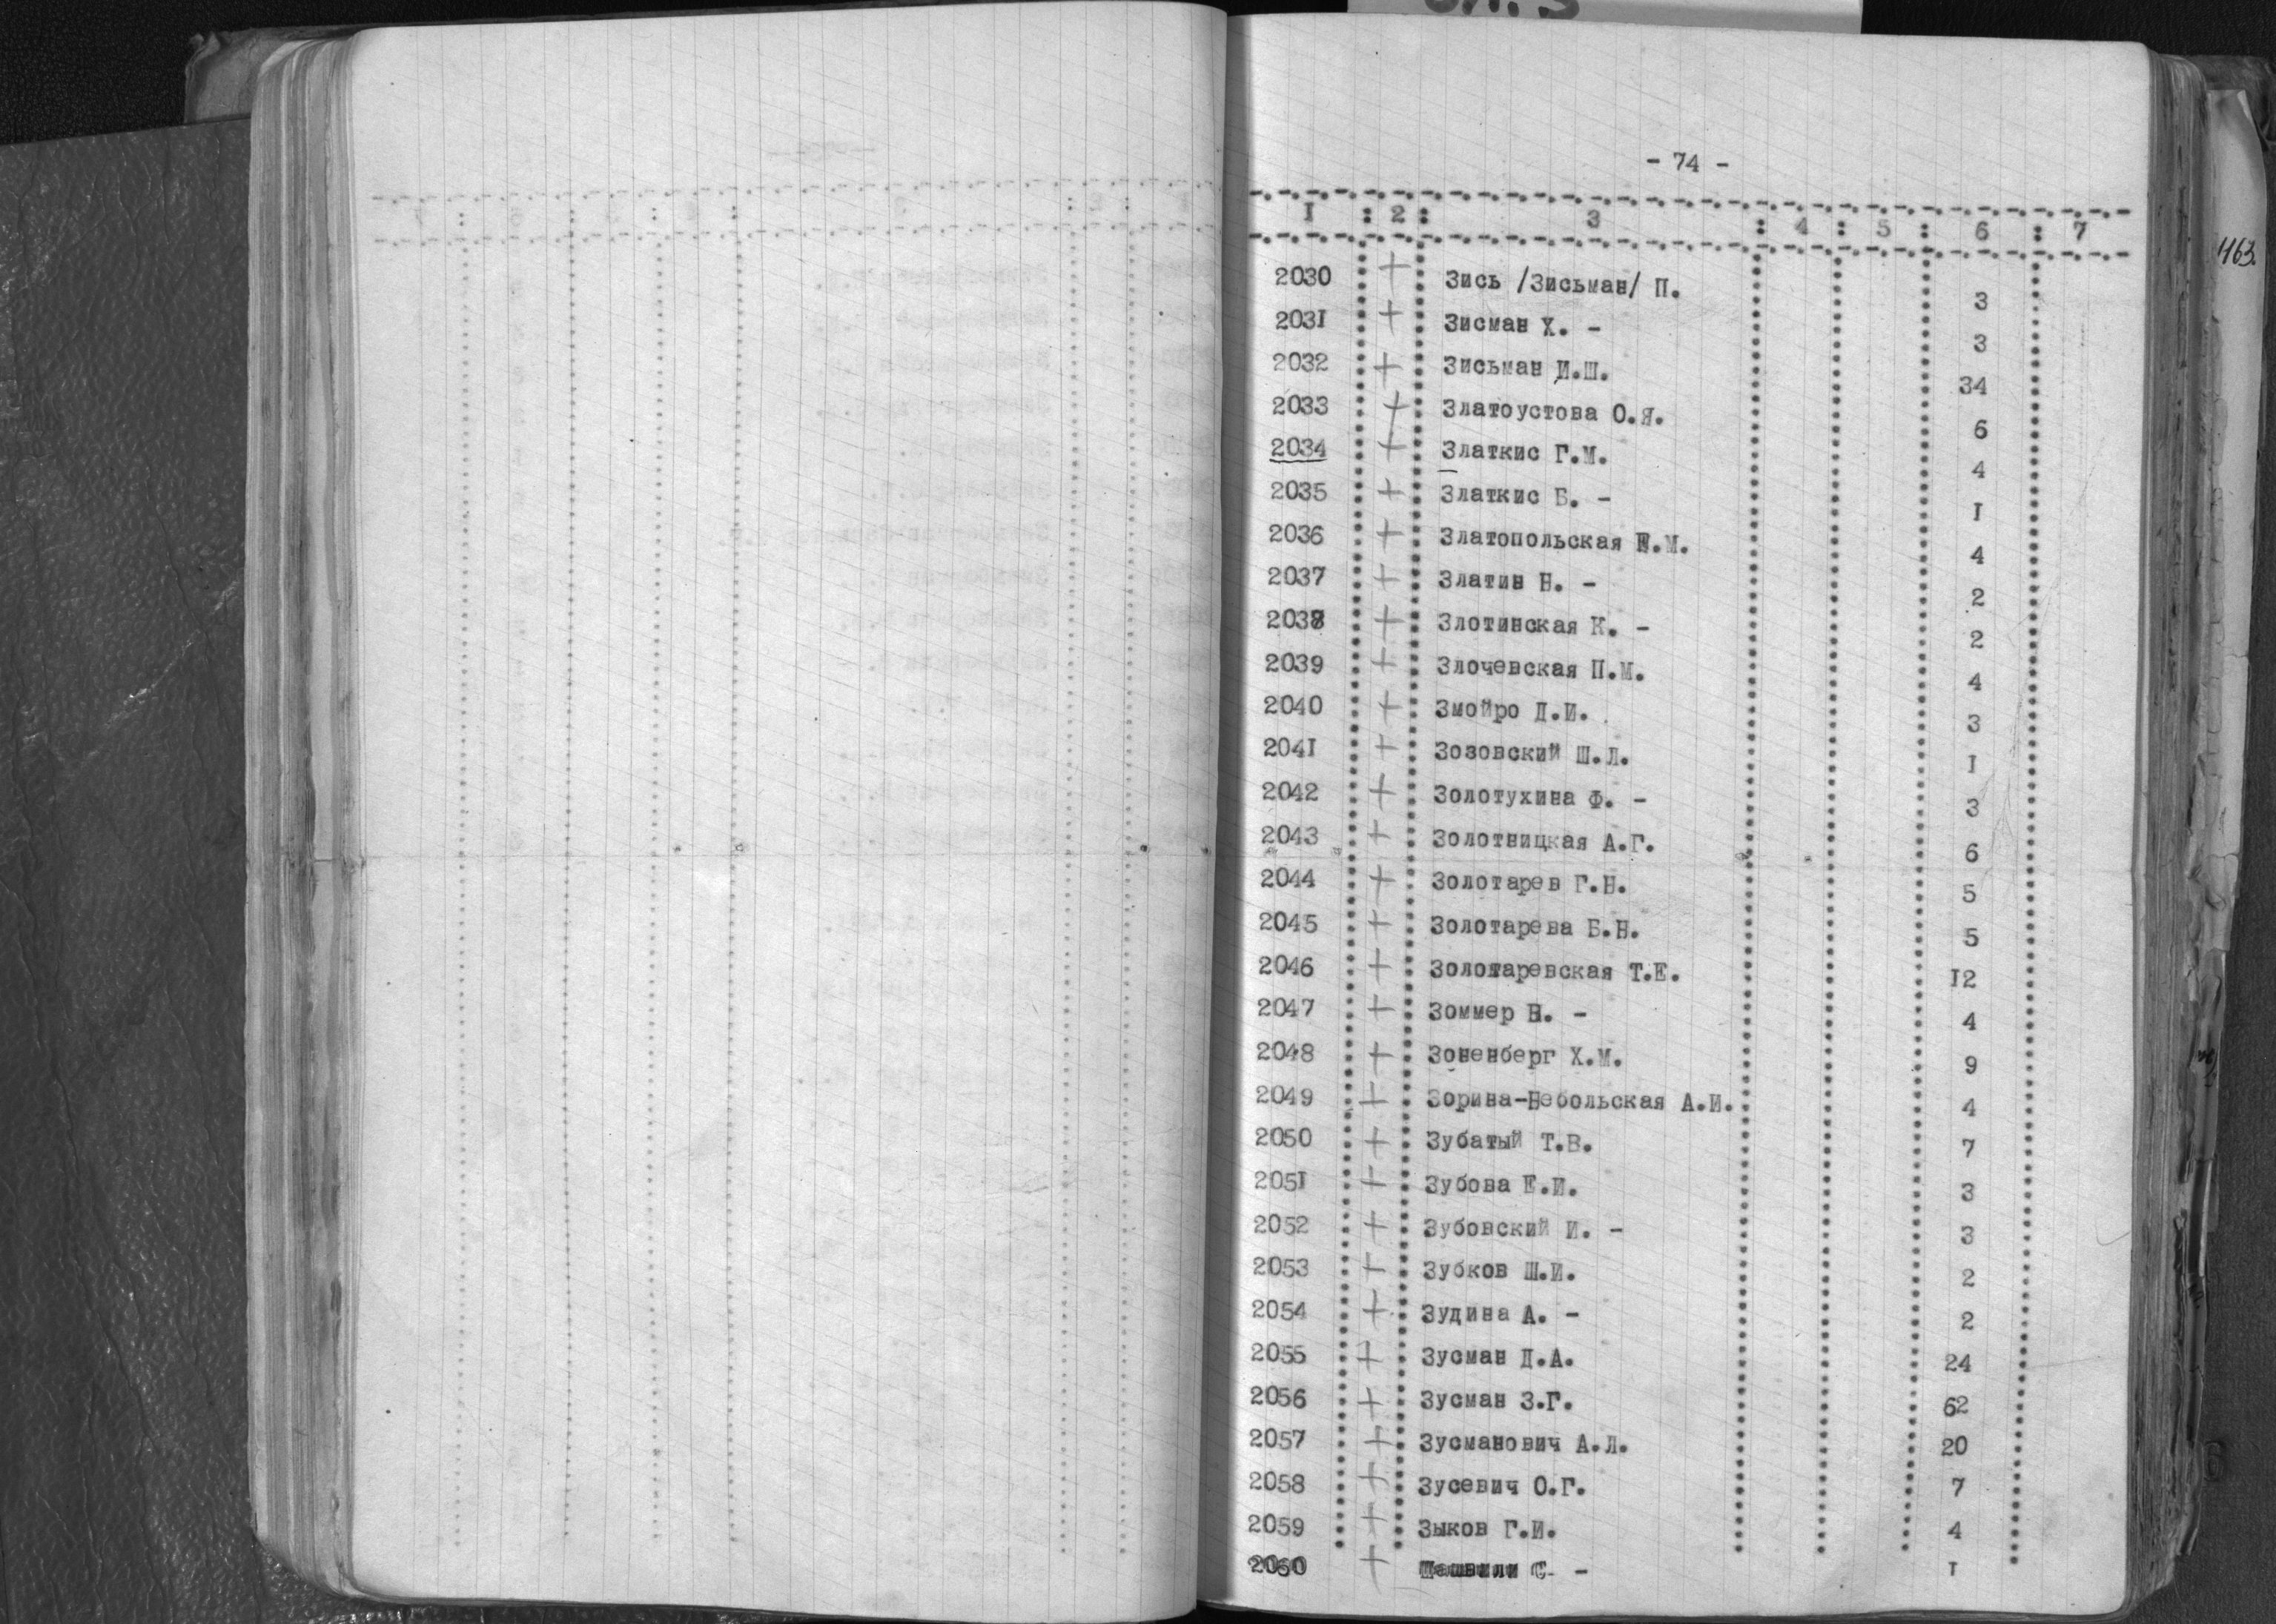 - 74 -
I : 2 : 3 : 4 : 5 : 6 : 7
463.
2030 + Зись /Зисьман/ П. 3
2031 + Зисман Х. - 3
2032 + Зисьман И.Ш. 34
2033 + Златоустова О.Я. 6
2034 + Златкис Г.М. 4
2035 + Златкис Б. - I
2036 + Златопольская Е.М. 4
2037 + Златин Н. - 2
2038 + Злотинская К. - 2
2039 + Злочевская П.М. 4
2040 + Змойро Д.И. 3
204I + Зозовский Ш.Л. I
2042 + Золотухина Ф. - 3
2043 + Золотницкая А.Г. 6
2044 + Золотарев Г.Н. 5
2045 + Золотарева Б.Н. 5
2046 + Золотаревская Т.Е. I2
2047 + Зоммер Н. - 4
2048 + Зоненберг Х.М. 9
2049 + Зорина-Небольская А.И. 4
2050 + Зубатый Т.В. 7
205I + Зубова Е.И. 3
2052 + Зубовский И. - 3
2053 + Зубков Ш.И. 2
2054 + Зудина А. - 2
2055 + Зусман Д.А. 24
2056 + Зусман З.Г. 62
2057 + Зусманович А.Л. 20
2058 + Зусевич О.Г. 7
2059 + Зыков Г.И. 4
2060 + - I